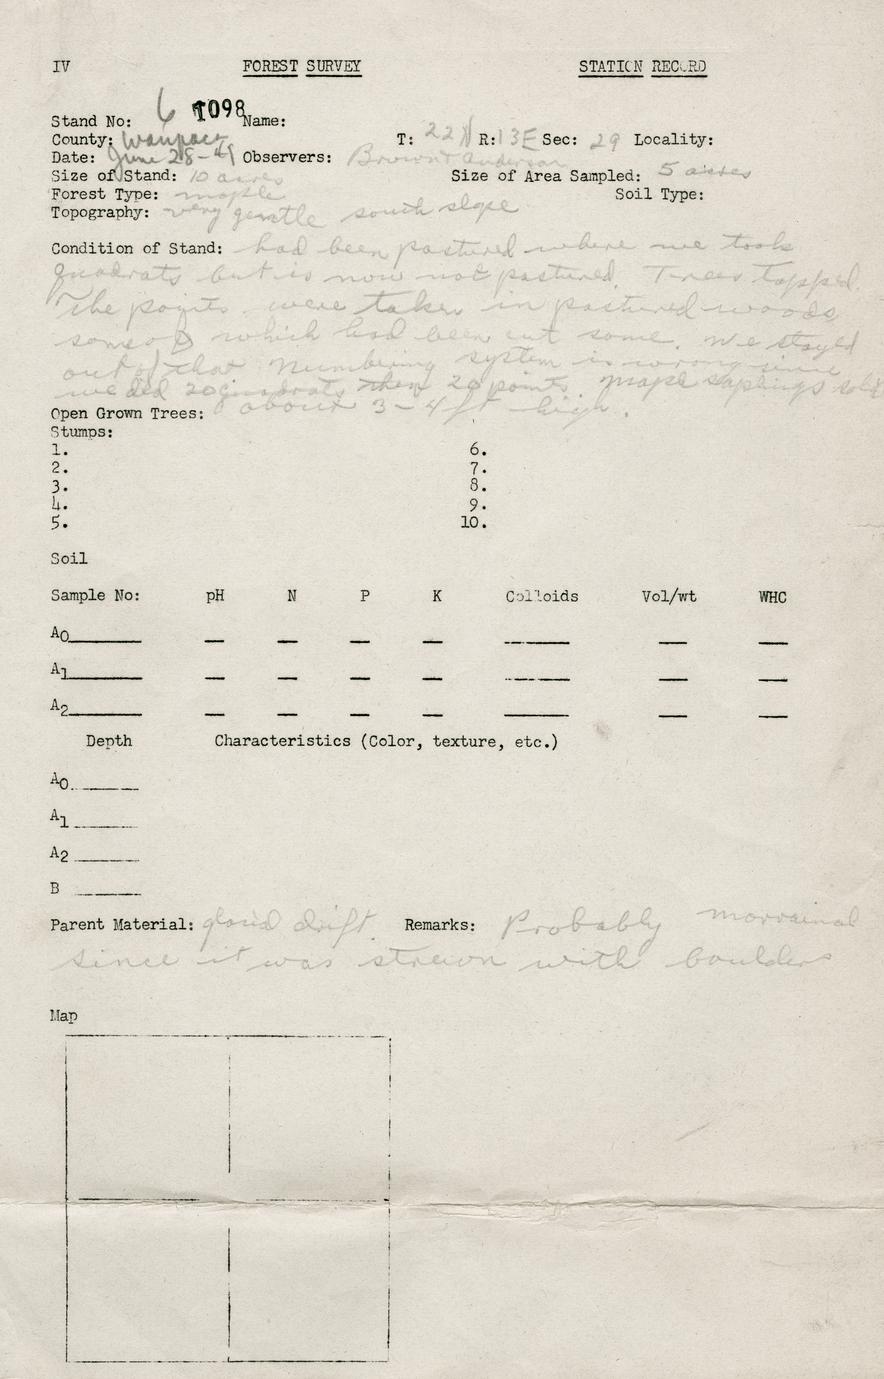 IV FOREST SURVEY STATION RECORD
Stand No: 6 1098 Name:
County: Waupaca T: 22N R: 13E Sec: 29 Locality:
Date: June 28-49 Observers: Brown & Anderson
Size of Stand: 10 acres Size of Area Sampled: 5 acres
Forest Type: maple Soil Type:
Topography: very gentle south slope
Condition of Stand: had been pastured where we took
quadrats but is now not pastured. Trees tapped.
The points were taken in pastured woods
some of which had been cut some. We stayed
out of that Numbering system is wrong since
we did 20 quadrats then 20 points. Maple saplings solid
about 3-4 ft high.
Open Grown Trees:
Stumps:
1. 6.
2. 7.
3. 8.
4. 9.
5. 10.
Soil
Sample No: pH N P K Colloids Vol/wt WHC
A0
A1
A2
Depth Characteristics (Color, texture, etc.)
A0
A1
A2
B
Parent Material: glacial drift Remarks: Probably morrainal
since it was strewn with boulders
Map